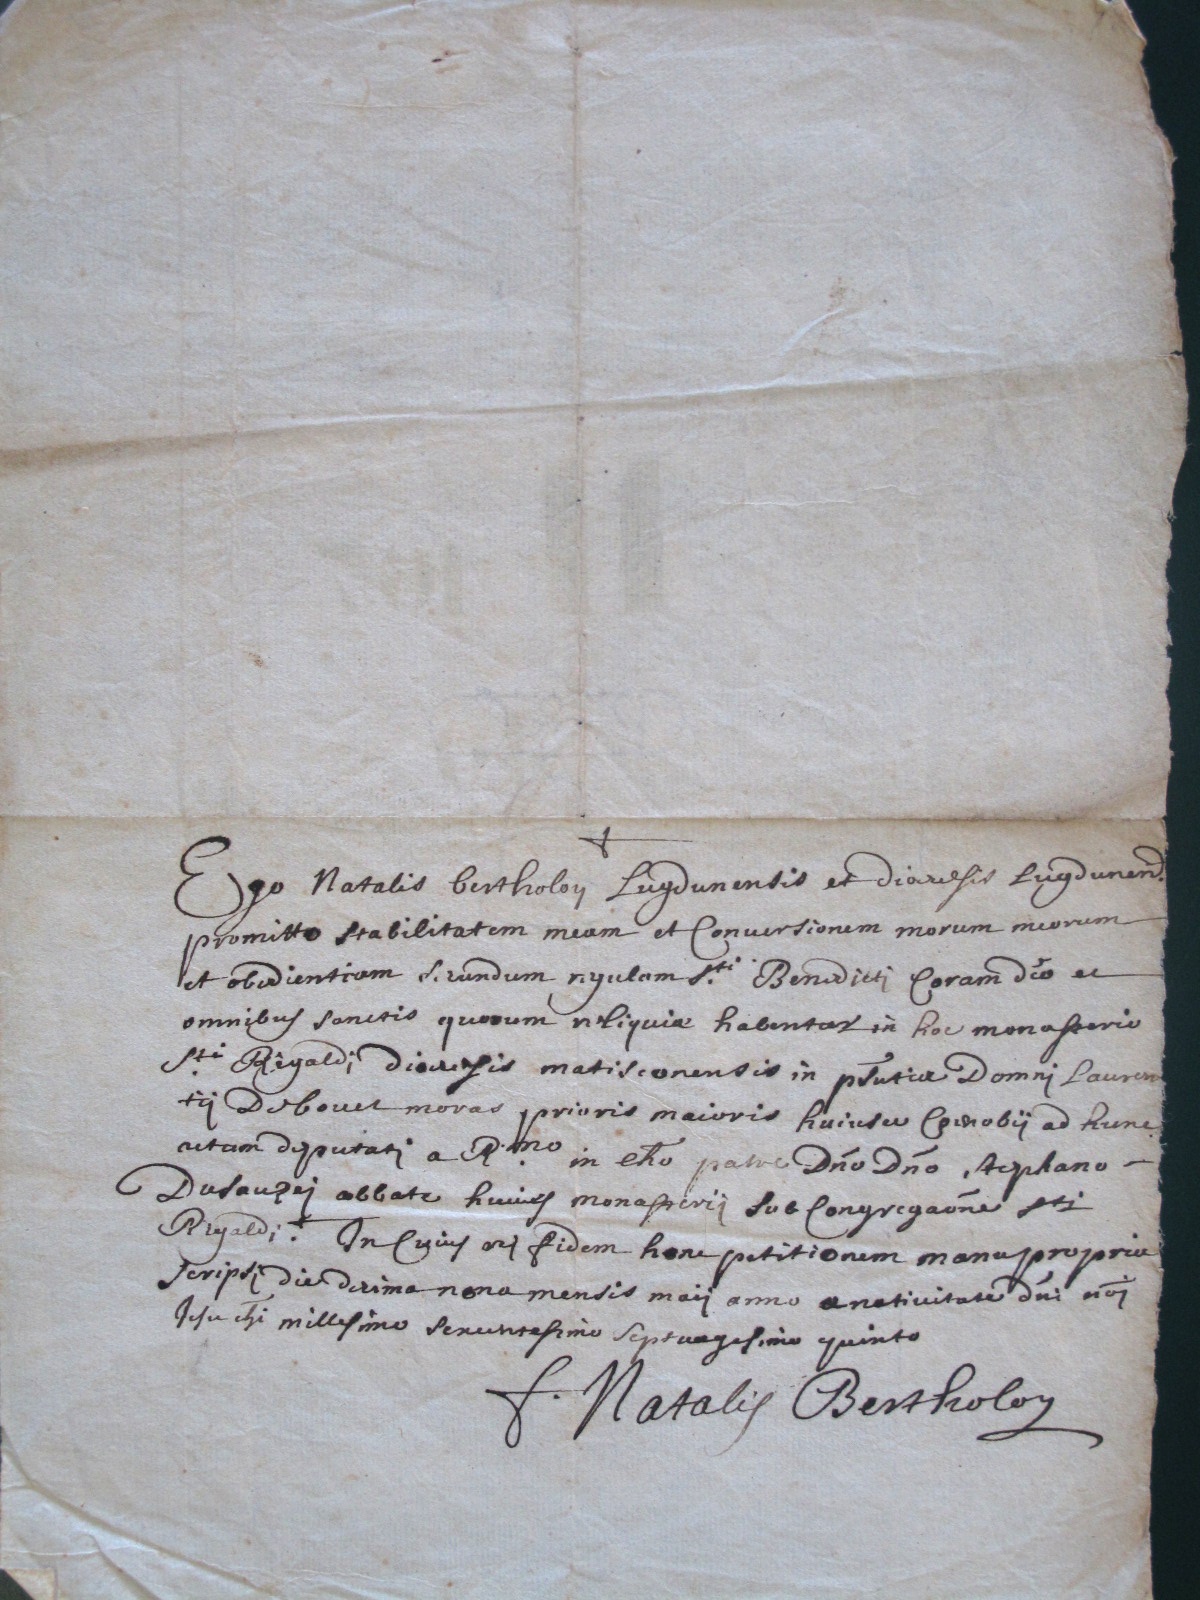 †
Ego Natalis bertholoy Lugdunensis et diœcesis Lugdunens̄.
promitto stabilitatem meam et Conversionem morum meorum
et obedientiam secundum regulam S.ti Benedicti Coram dēo et
omnibus sanctis quorum reliquiæ habentur in hoc monasterio
S.ti Rigaldi, diœcesis matisconensis in p̄sentia Domni Lauren
tij Debouet moras prioris maioris huiusce Cœnobij ad hunc
actum deputati a R.mo in ch̄o patre Dn̄o Dn̄o Stephano
Dusauzei abbate huius monasterij sub Congregaōne sti
Rigaldi. In Cuius rei fidem hanc petitionem manu propria
scripsi die decima nona mensis maij anno a nativitate dn̄i nr̄i
Jesu ch̄i millesimo sexcentesimo septuagesimo quinto
f. Natalis Bertholoy